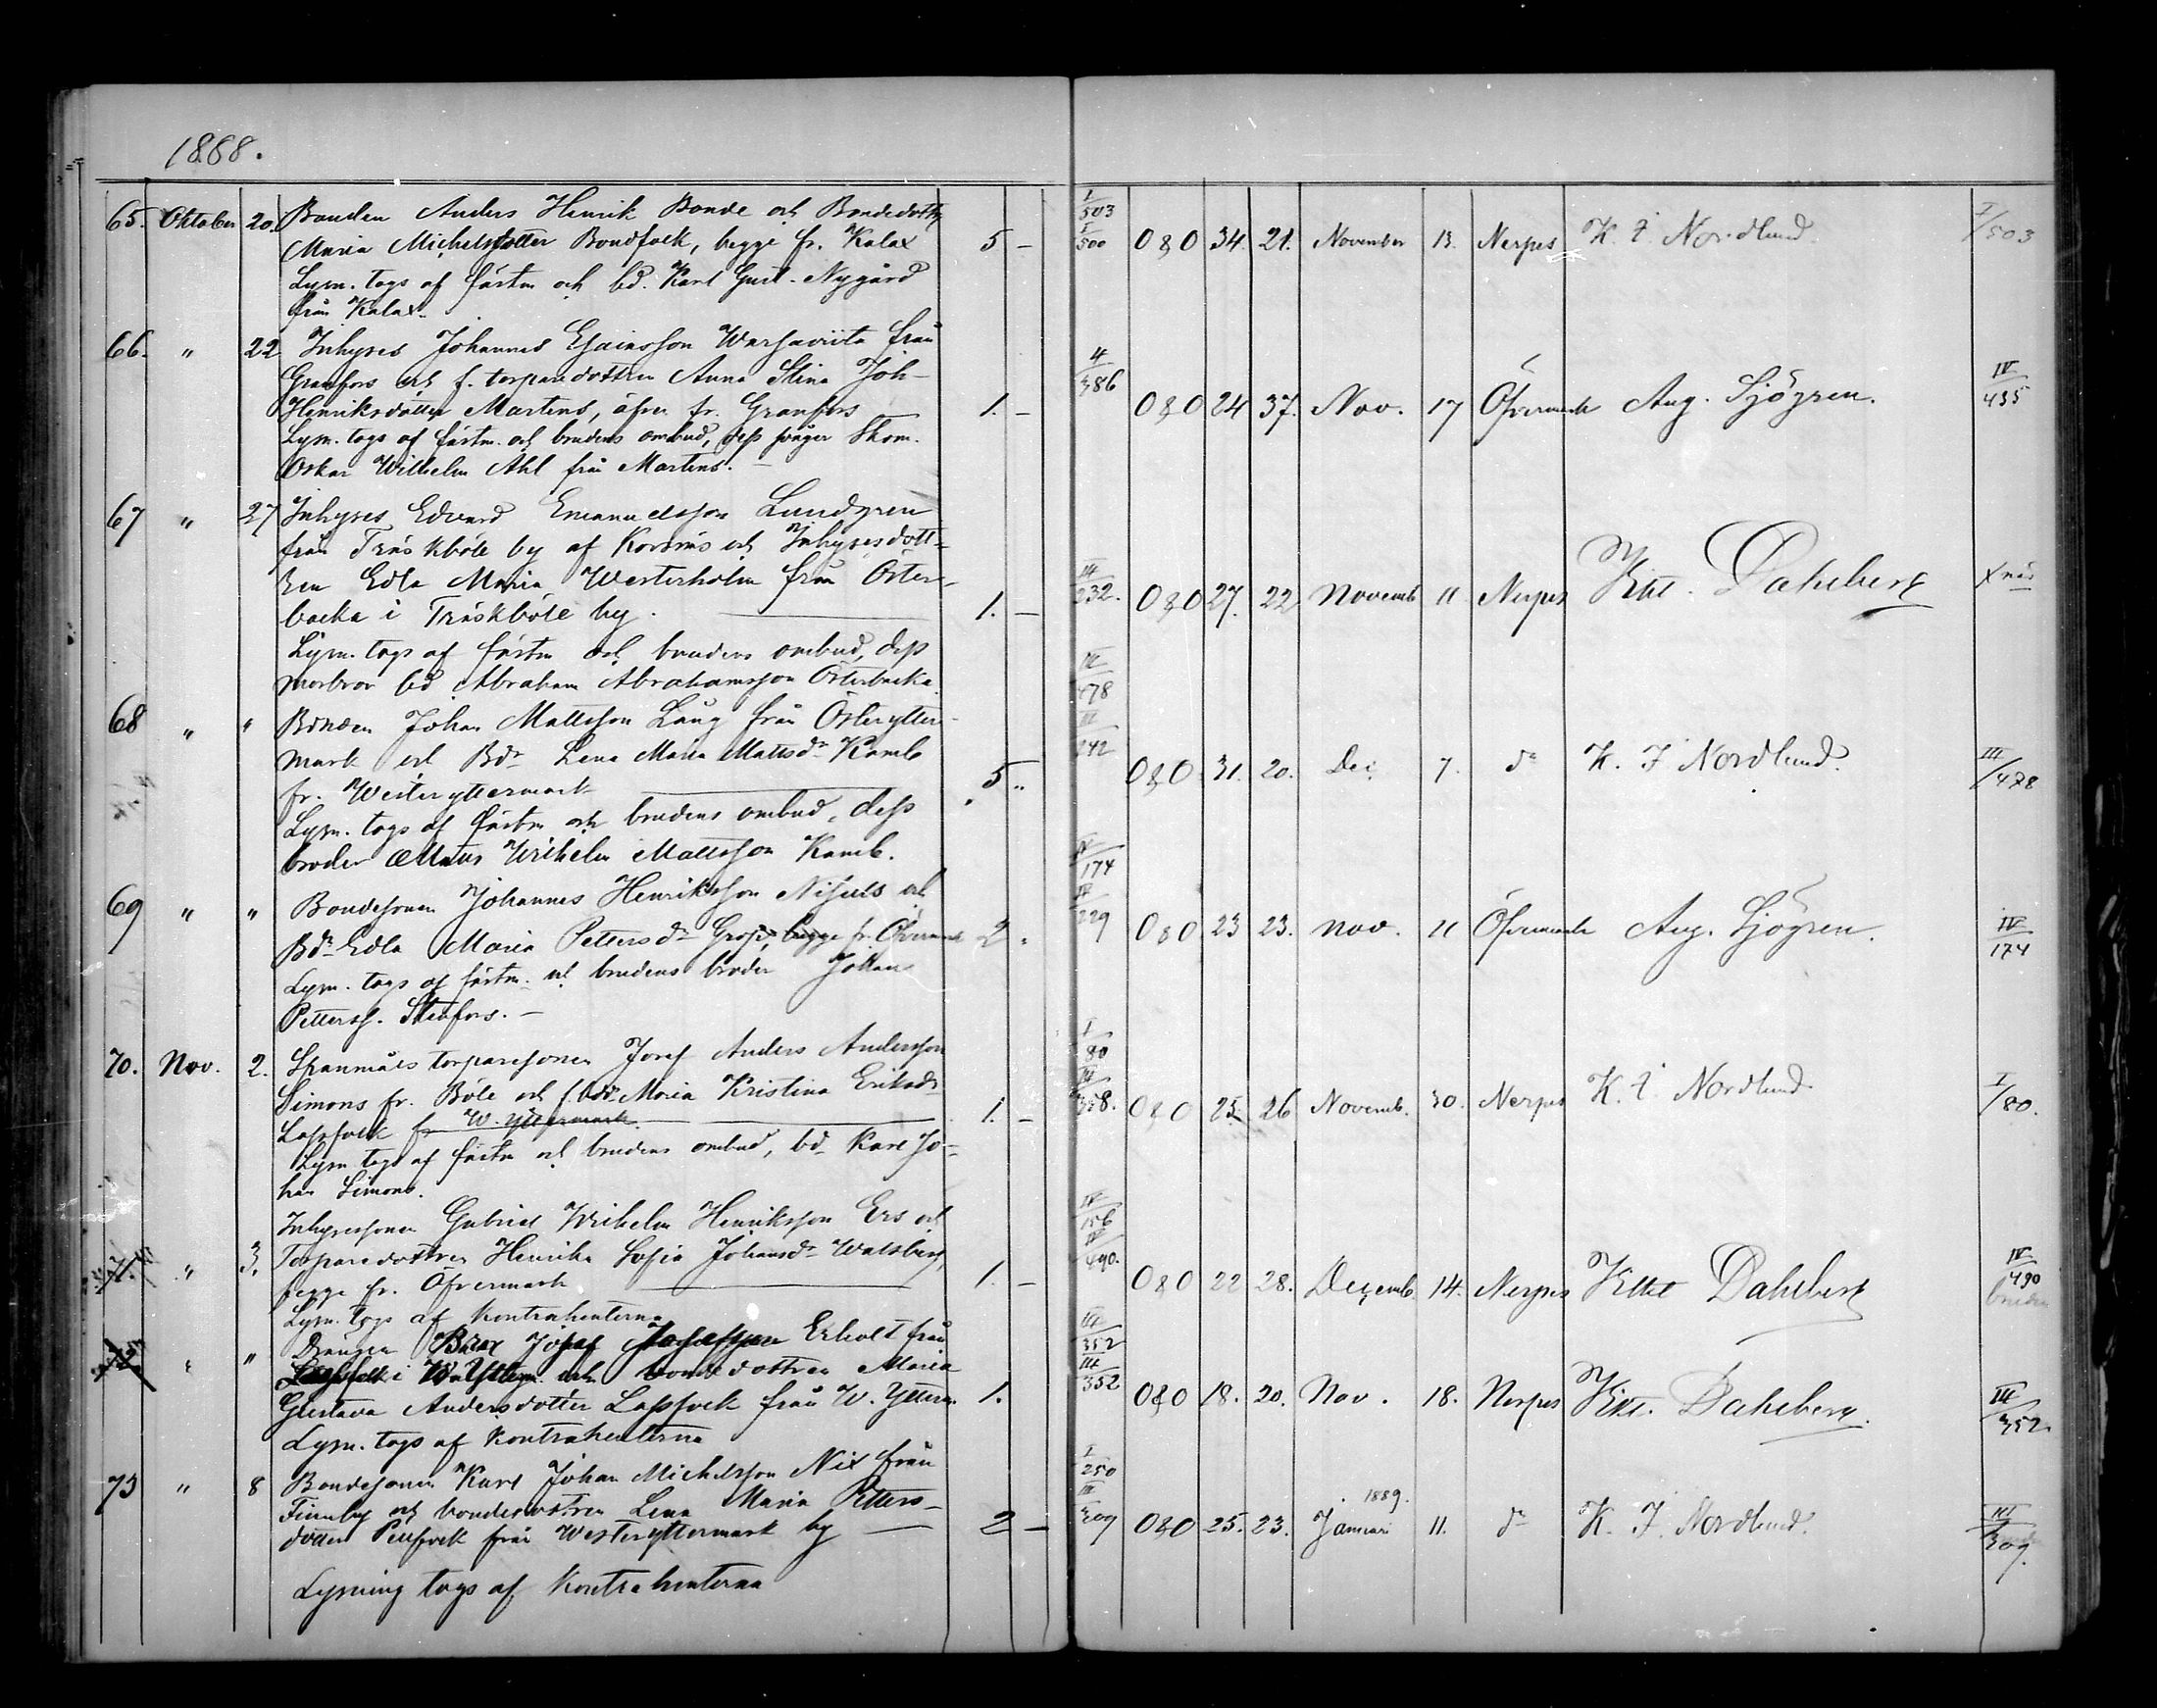 1888.
65. Oktober 20. Bonden Anders Henrik Bonde och Bondedottr
Maria Michelsdotter Bondfolk, begge fr. Kalax 5 –
Lysn. togs af fästm och bd. Karl Gust. Nygård
från Kalax.
I/503 I/500 O&O 34. 21. November 13. Nerpes K. J. Nordlund. I/503
66. " 22 Inhyses Johannes Esaiasson från
Granfors och f. torparedottren Anna Stina Joh-
Henriksdotter Martens, äfven fr. Granfors 1. –
Lysn. togs af fästm. och brudens ombud, dess svåger Skom.
Oskar Wilhelm Ahl från Martens. –
4/386 O&O 24 37. Nov. 17 Öfvermark Aug. Sjögren. IV/435
67 " 27 Inhyses Edvard Emanuelsson Lundgren
från Träskböle by af Korsnäs och Inhysesdott-
ren Edla Maria Westerholm från Öster-
backa i Träskböle by. 1. –
Lysn. togs af fästm och brudens ombud, dess
morbror bd Abraham Abrahamsson Österbacka.
III/232. O&O 27. 22 Novemb 11 Nerpes Dahlberg
68 " " Bonden Johan Mattsson Lång från Österytter-
mark och Bdr Lena Maria Mattsdr Kamb
fr. Westeryttermark 5 "
Lysn. togs af fästm och brudens ombud, dess
broder Wilhelm Mattsson Kamb.
III/478 III/242 O&O 31. 20. Dec 7. do K. J Nordlund. III/478
69 " " Bondesonen Johannes Henriksson Nisuls och
Bdr Edla Maria Pettersdr begge fr. Öfvermark 2.
Lysn. togs af fästm. och brudens broder Johan
Petterss. Stenfors. –
IV/174 IV/229 O&O 23 23. Nov. 11 Öfvermark Aug. Sjögren. IV/174
70. Nov. 2. Spanmåls torparesonen Josef Anders Andersson
Simons fr. Böle och Maria Kristina Eriksdr
Lassfolk fr W. Yttermark. 1. –
Lysn togs af fästm och brudens ombud, bd Karl Jo-
han Simons.
I/80 III/358. O&O 25. 26 Novemb. 30. Nerpes K. J Nordlund I/80.
71. " 3. Inhysessonen Gabriel Wilhelm Henriksson Ers och
Torparedottren Henrika Sofia Johansdr Walsberg,
begge fr. Öfvermark 1. –
Lysn. togs af kontrahenterna
IV/156 IV/490. O&O 22 28. Decemb. 14. Nerpes Dahlberg IV/490
bruden
72 " " Drängen Josef Josefsson Erholt från
Lassfolk i W. Ytterm. och bondedottren Maria
Gustava Andersdotter Lassfolk från W. Ytterm. 1.
Lysn. togs af kontrahenterna
III/352 III/352 O&O 18. 20. Nov. 18. Nerpes Dahlberg. III/352
73 " 8 Bondesonen Karl Johan Michelsson Nix från
Finnby och bondedottren Lena Maria Petters-
dotter från Westeryttermark by 2 –
Lysning togs af kontrahenterna
I/250 III/309 O&O 25. 23. Januari 1889. 11. do K. J. Nordlund. III/309.